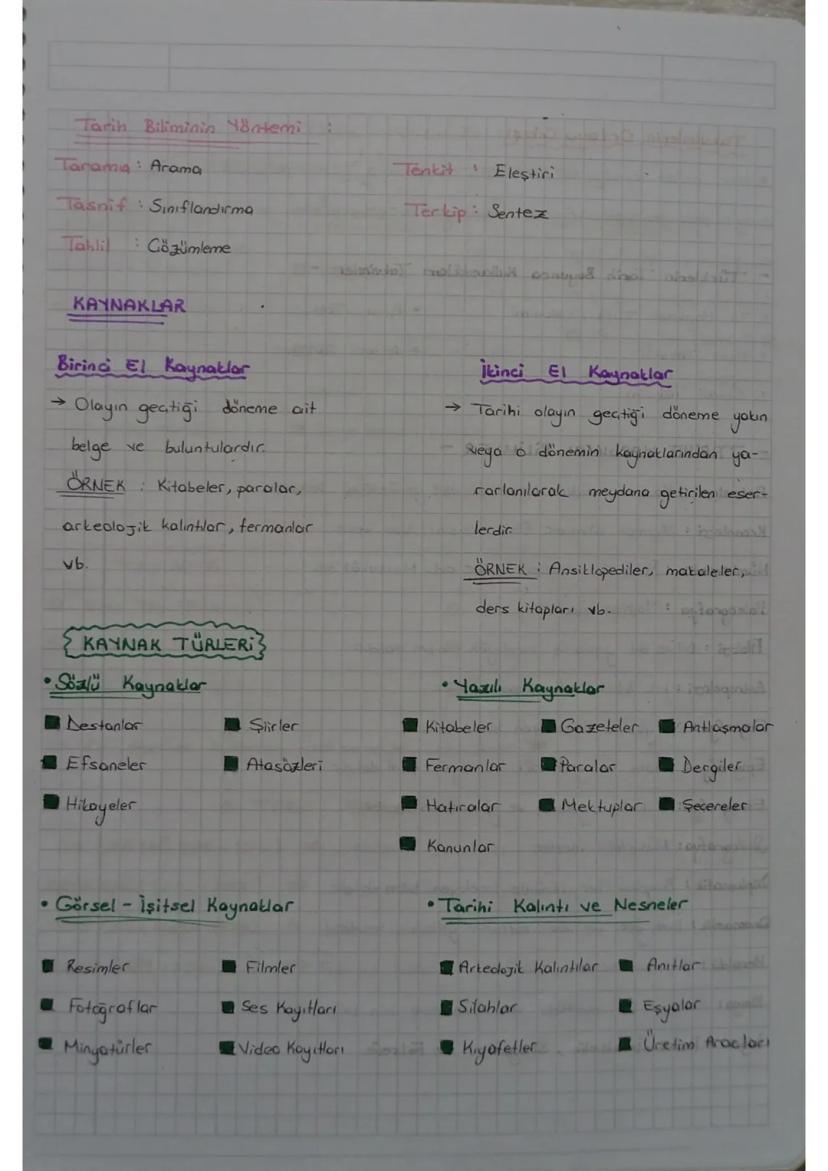 Tarih Biliminin Yöntemi :
Tarama : Arama
Tenkit : Eleştiri
Tasnif : Sınıflandırma
Terkip : Sentez
Tahlil : Çözümleme
KAYNAKLAR
Birinci El Kaynaklar
→ Olayın geçtiği döneme ait
belge ve buluntulardır.
ÖRNEK : Kitabeler, paralar,
arkeolojik kalıntılar, fermanlar
vb.
İkinci El Kaynaklar
→ Tarihi olayın geçtiği döneme yakın
veya o dönemin kaynaklarından ya-
rarlanılarak meydana getirilen eser-
lerdir.
ÖRNEK : Ansiklopediler, makaleler,
ders kitapları vb.
KAYNAK TÜRLERİ
• Sözlü Kaynaklar
■ Destanlar ■ Şiirler
■ Efsaneler ■ Atasözleri
■ Hikayeler
• Yazılı Kaynaklar
■ Kitabeler ■ Gazeteler ■ Antlaşmalar
■ Fermanlar ■ Paralar ■ Dergiler
■ Hatıralar ■ Mektuplar ■ Şecereler
■ Kanunlar
• Görsel - İşitsel Kaynaklar
■ Resimler ■ Filmler
■ Fotoğraflar ■ Ses Kayıtları
■ Minyatürler ■ Video Kayıtları
• Tarihi Kalıntı ve Nesneler
■ Arkeolojik Kalıntılar ■ Anıtlar
■ Silahlar ■ Eşyalar
■ Kıyafetler ■ Üretim Araçları